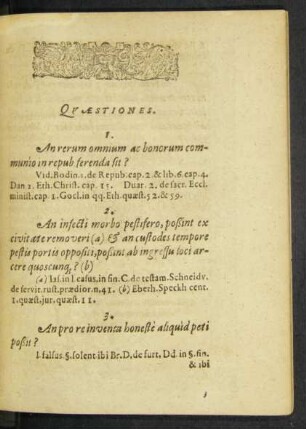 QVÆSTIONES.
1.
An rerum omnium ac bonorum com-
munio in repub ferenda sit?
Vid. Bodin. 1. de Repub. cap. 2. & lib. 6. cap. 4.
Dan 1. Eth. Christ. cap. 15. Duar. 2. de sacr. Eccl.
minist. cap. 1. Gocl. in qq. Eth. quæst. 52. & 59.
2.
An infecti morbo pestifero, poßint ex
civitate removeri (a) & an custodes tempore
pestis portis oppositi, poßint ab ingressu loci ar-
cere quoscunq;? (b)
(a) Ias. in l. easus, in fin. C. de testam. Schneidv.
de servit. rust. prædior. n. 41. (b) Eberh. Speckh cent.
1. quæst. jur. quæst. 11.
3.
An pro re inventa honestè aliquid peti
poßit?
l. falsus. §. solent. ibi Br. D. de furt. Dd. in §. fin.
& ibi